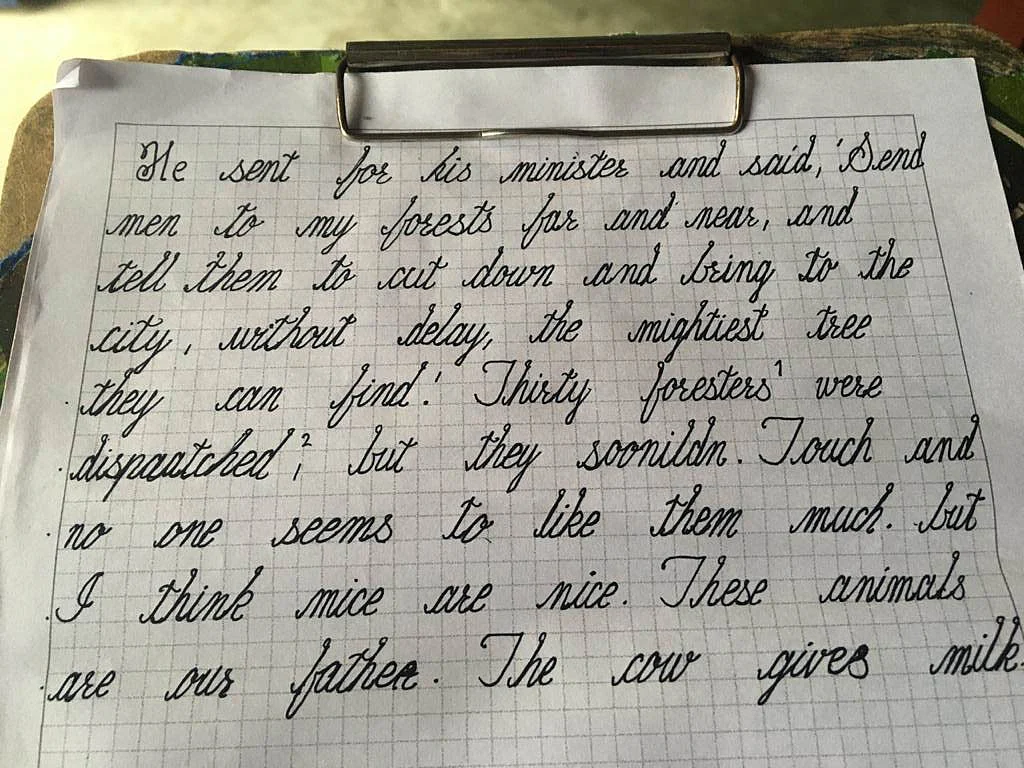 He sent for his minister and said, 'Send
men to my forests far and near, and
tell them to cut down and bring to the
city, without delay, the mightiest tree
they can find.' Thirty foresters¹ were
dispaatched², but they soonildn. Touch and
no one seems to like them much. but
I think mice are nice. These animals
are our father. The cow gives milk.